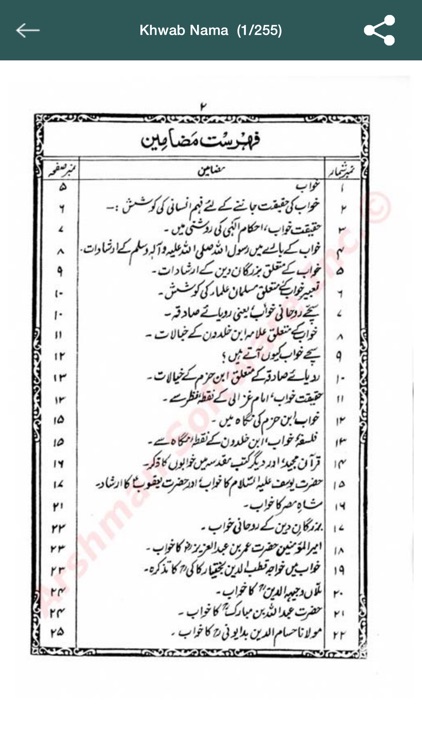 Khwab Nama (1/255)
۲
فہرست مضامین
نمبر شمار مضامین نمبر صفحہ
۱ خواب ۵
۲ خواب کی حقیقت جاننے کے لئے فہم انسانی کی کوشش :- ۶
۳ حقیقت خواب، احکام الٰہی کی روشنی میں - ۷
۴ خواب کے بارے میں رسول اللہ صلی اللہ علیہ و آلہ وسلم کے ارشادات - ۸
۵ خواب کے متعلق بزرگان دین کے ارشادات - ۹
۶ تعبیر خواب کے متعلق مسلمان علماء کی کوشش - ۱۰
۷ سچے روحانی خواب یعنی رویائے صادقہ - ۱۰
۸ خواب کے متعلق علامہ ابن خلدون کے خیالات - ۱۱
۹ سچے خواب کیوں آتے ہیں؟ ۱۲
۱۰ رویائے صادقہ کے متعلق ابن حزم کے خیالات - ۱۳
۱۱ حقیقت خواب، امام غزالی کے نقطۂ نظر سے - ۱۳
۱۲ خواب ابن حزم کی نگاہ میں - ۱۵
۱۳ فلسفۂ خواب، ابن خلدون کے نقطۂ نگاہ سے - ۱۵
۱۴ قرآن مجید اور دیگر کتب مقدسہ میں خوابوں کا ذکر - ۱۶
۱۵ حضرت یوسف علیہ السلام کا خواب اور حضرت یعقوبؑ کا ارشاد - ۱۷
۱۶ شاہ مصر کا خواب - ۲۱
۱۷ بزرگان دین کے روحانی خواب - ۲۲
۱۸ امیر المؤمنین حضرت عمر بن عبدالعزیزؒ کا خواب - ۲۳
۱۹ خواب میں خواجہ قطب الدین بختیار کاکیؒ کا تذکرہ - ۲۳
۲۰ ملاں وجیہہ الدینؒ کا خواب - ۲۴
۲۱ حضرت عبداللہ بن مبارکؒ کا خواب - ۲۴
۲۲ مولانا حسام الدین بدایونیؒ کا خواب - ۲۵